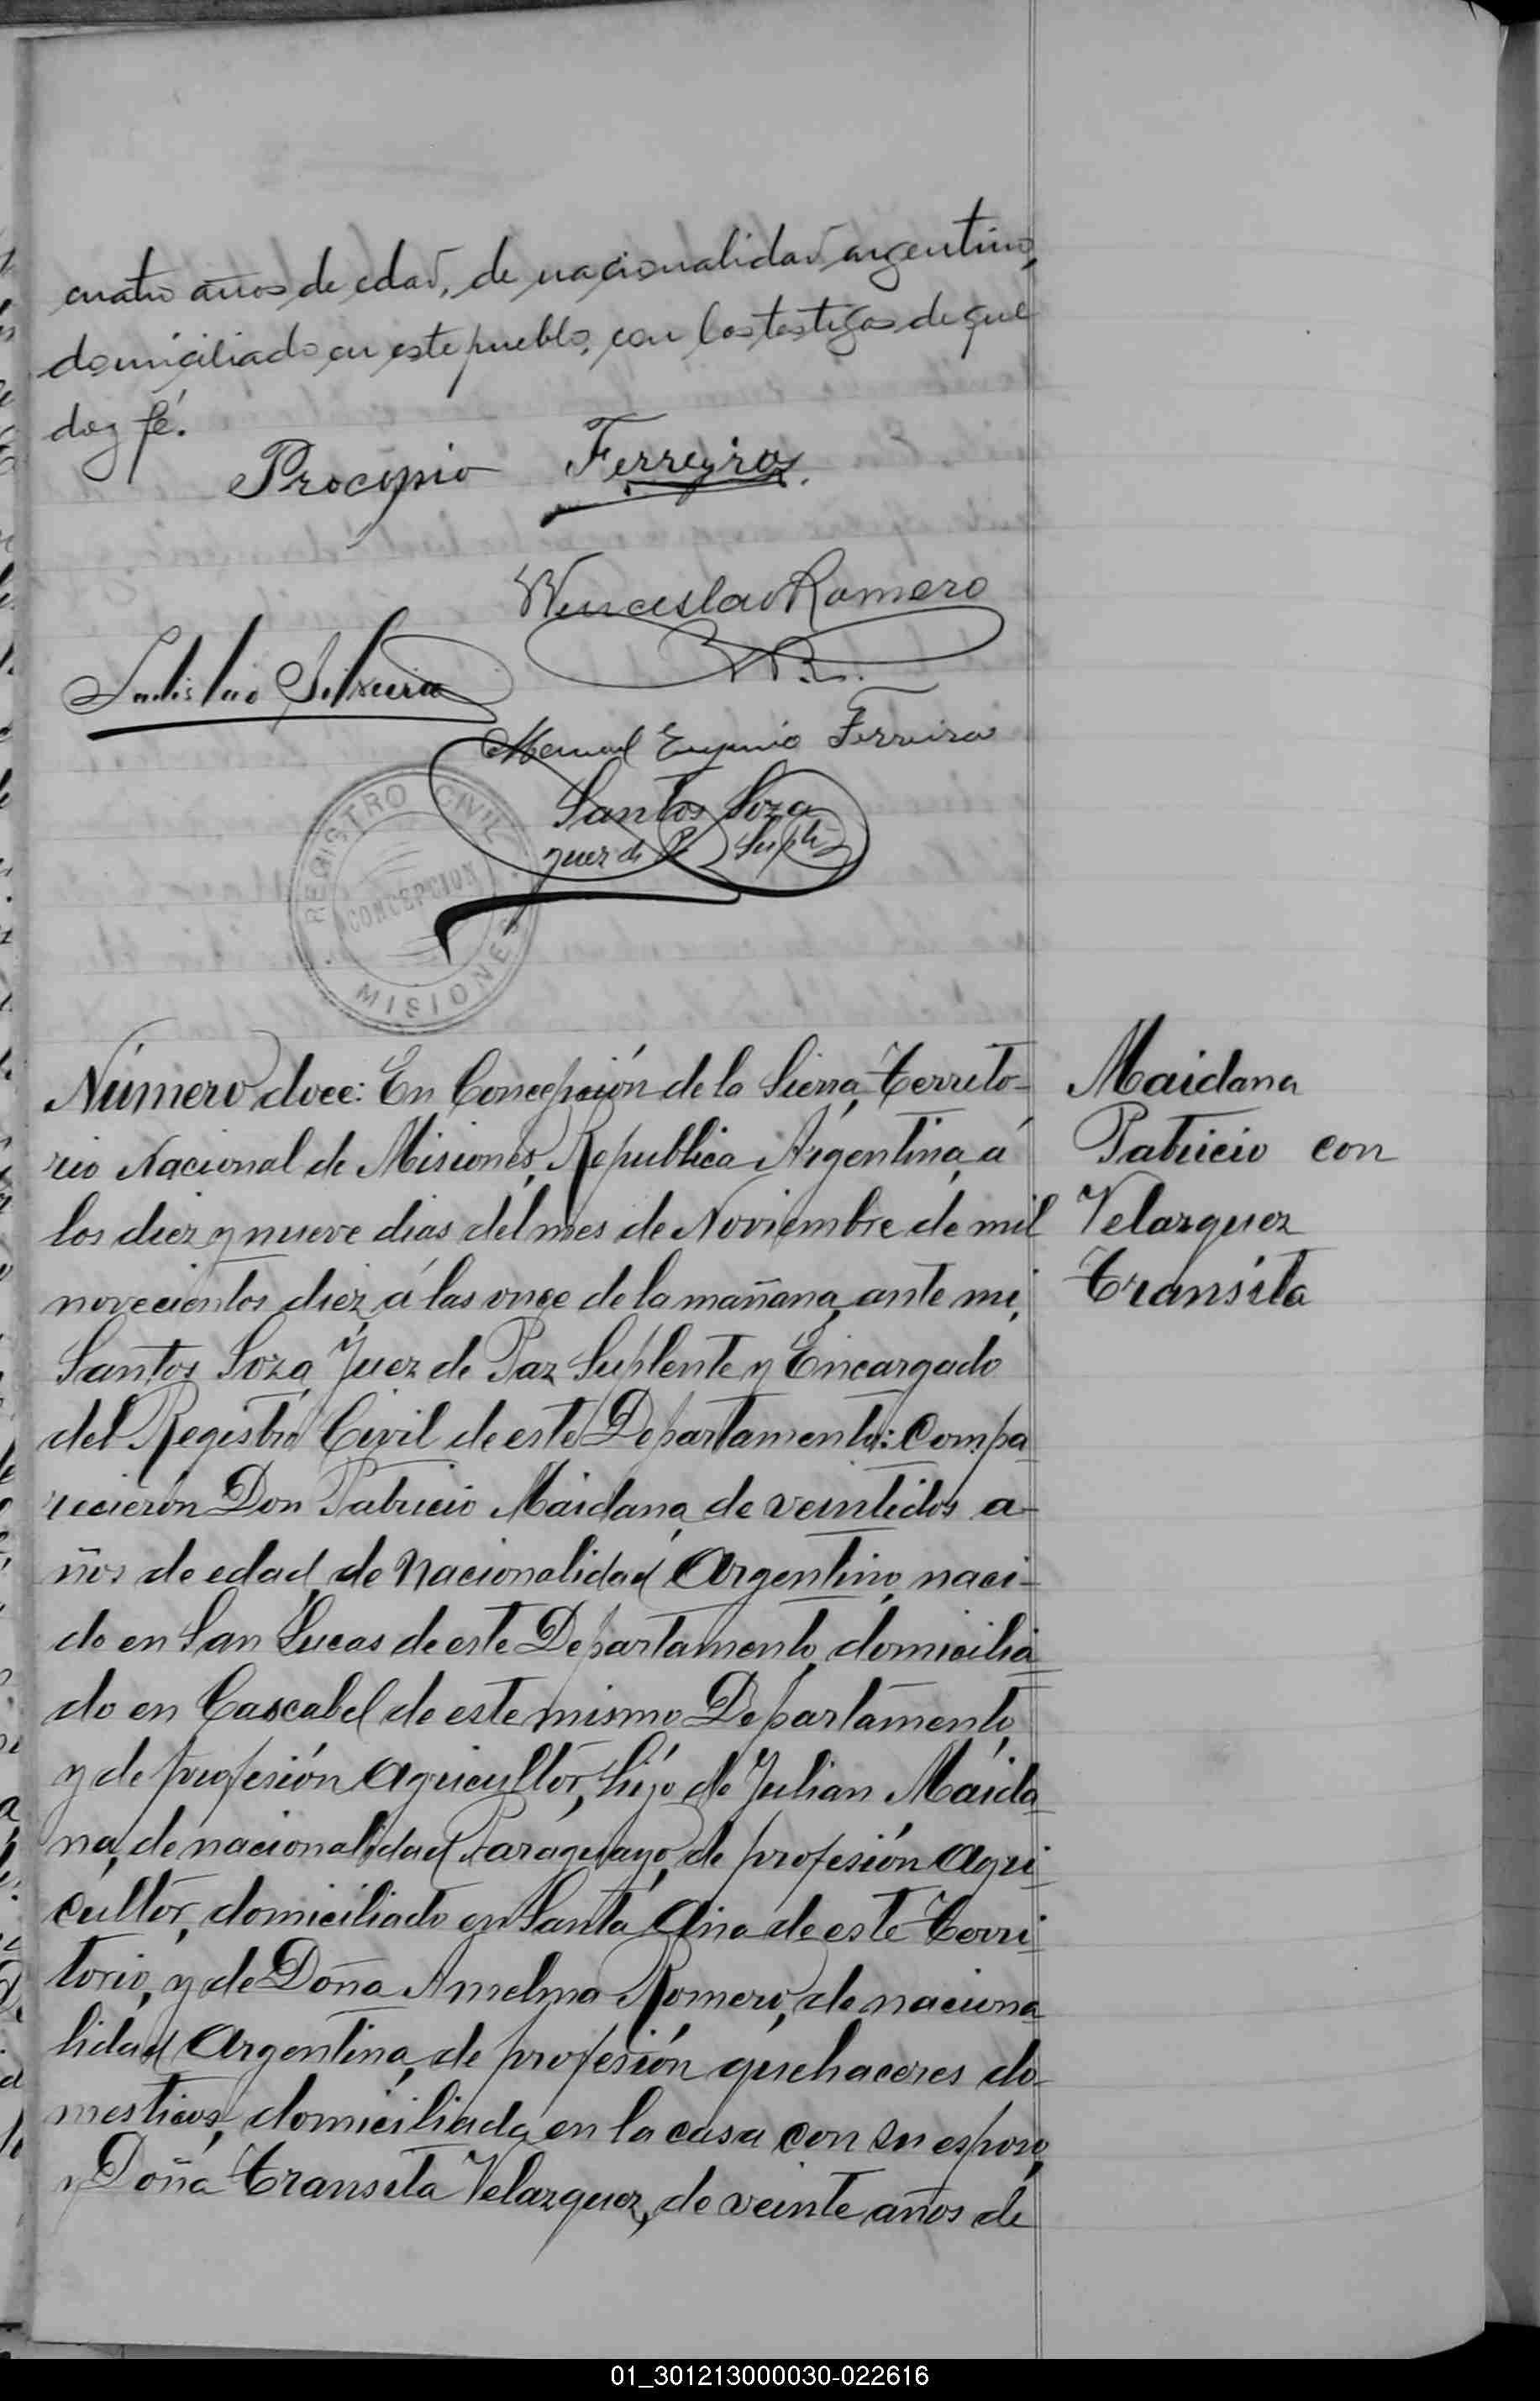 cuatro años de edad, de nacionalidad argentino,
domiciliado en este pueblo, con los testigos de que
doy fé.
Procopio Ferreyra.
Wenceslao Romero
W.R.
Ladislao Silveira
Manuel Eugenio Ferreira
Santos Soza
Juez de P Suplte
REGISTRO CIVIL
CONCEPCION
MISIONES
Número doce: En Concepción de la Sierra, Territo-
rio Nacional de Misiones, Republica Argentina, á
los diez y nueve dias del mes de Noviembre de mil
novecientos diez, á las once de la mañana, ante mi,
Santos Soza, Juez de Paz Suplente y Encargado
del Registro Civil de este Departamento: Compa
recierón Don Patricio Maidana, de veintidos a-
ños de edad, de Nacionalidad Argentino, naci-
do en San Lucas de este Departamento, domicilia
do en Cascabel de este mismo Departamento,
y de profesión Agricultór, hijo de Julian Maida
na, de nacionalidad Paraguayo, de profesión Agri
cultór, domiciliado en Santa Ana de este Terri
torio, y de Doña Amelma Romero, de naciona
lidad Argentina, de profesión quehaceres do-
mesticos, domiciliada en la casa con su esposo,
y Doña Transita Velazquez, de veinte años de
Maidana
Patricio con
Velazquez
Transita
01_301213000030-022616